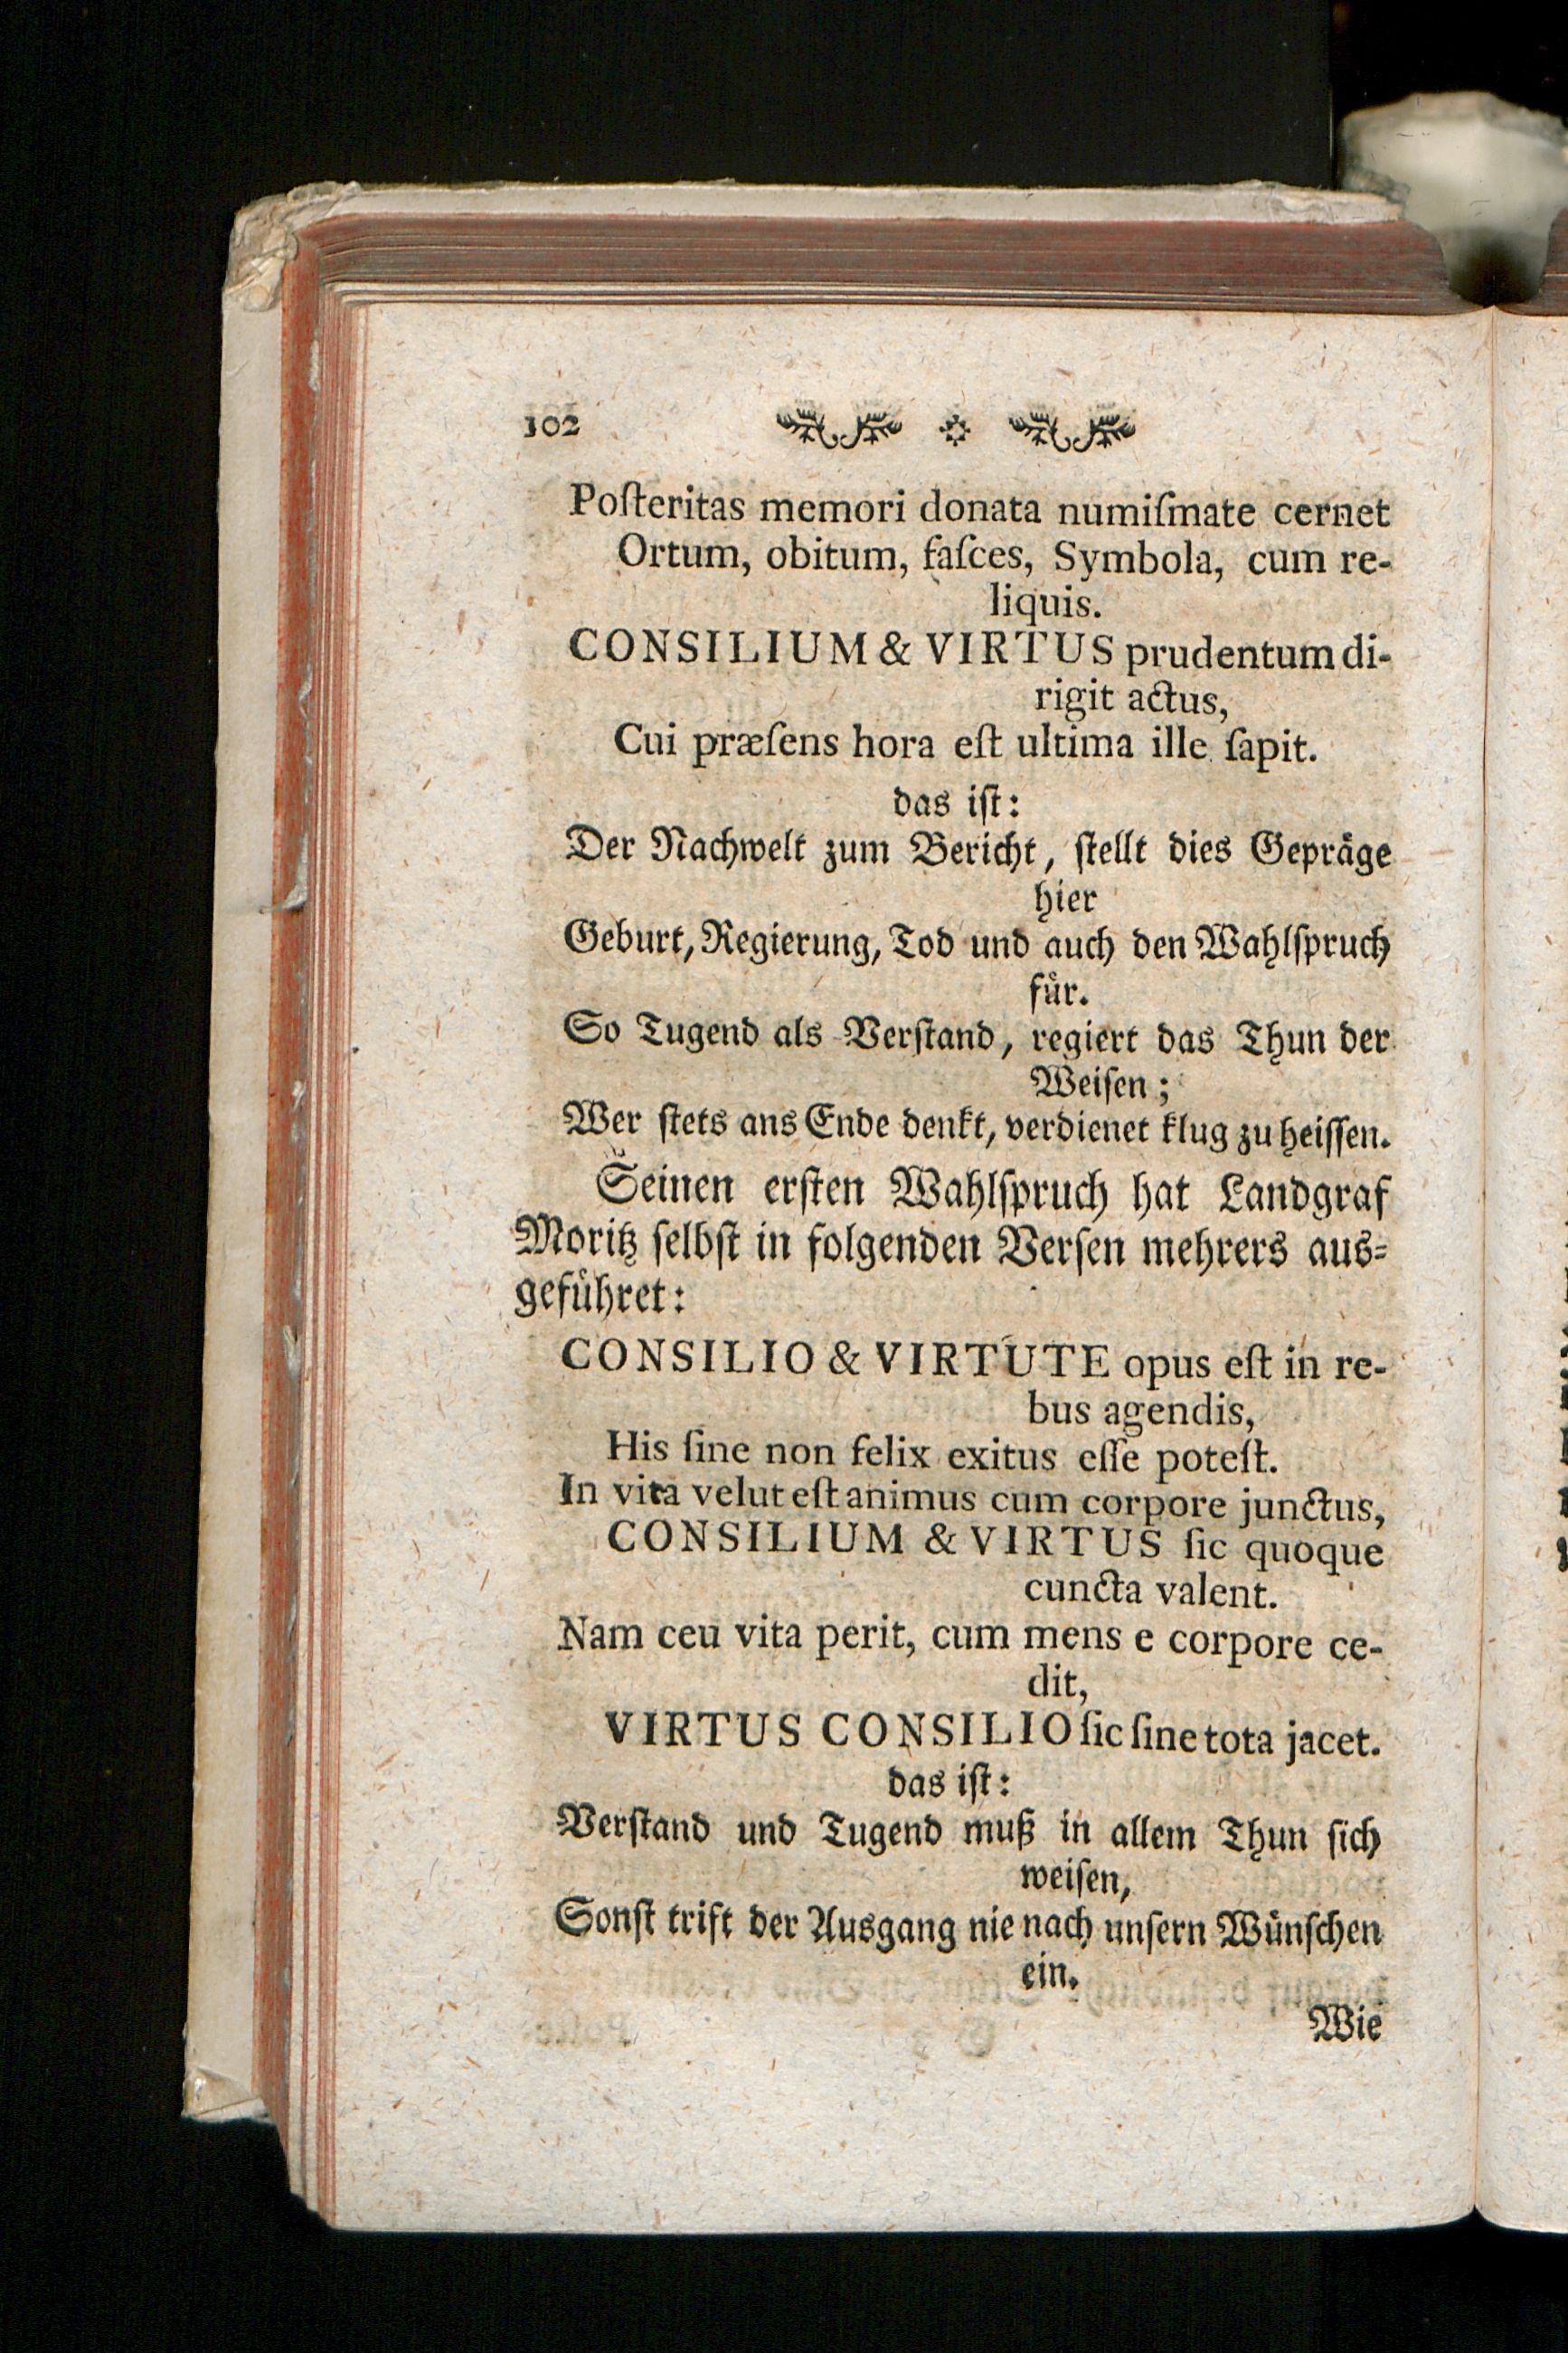 102
Poſteritas memori donata numiſmate cernet
Ortum, obitum, faſces, Symbola, cum re-
liquis.
CONSILIUM & VIRTUS prudentum di-
rigit actus,
Cui præſens hora eſt ultima ille ſapit.
das iſt:
Der Nachwelt zum Bericht, ſtellt dies Gepräge
hier
Geburt, Regierung, Tod und auch den Wahlſpruch
für.
So Tugend als Verſtand, regiert das Thun der
Weiſen;
Wer ſtets ans Ende denkt, verdienet klug zu heiſſen.
Seinen erſten Wahlſpruch hat Landgraf
Moritz ſelbſt in folgenden Verſen mehrers aus-
geführet:
CONSILIO & VIRTUTE opus eſt in re-
bus agendis,
His ſine non felix exitus eſſe poteſt.
In vita velut eſt animus cum corpore junctus,
CONSILIUM & VIRTUS ſic quoque
cuncta valent.
Nam ceu vita perit, cum mens e corpore ce-
dit,
VIRTUS CONSILIO ſic ſine tota jacet.
das iſt:
Verſtand und Tugend muß in allem Thun ſich
weiſen,
Sonſt trift der Ausgang nie nach unſern Wünſchen
ein.
Wie